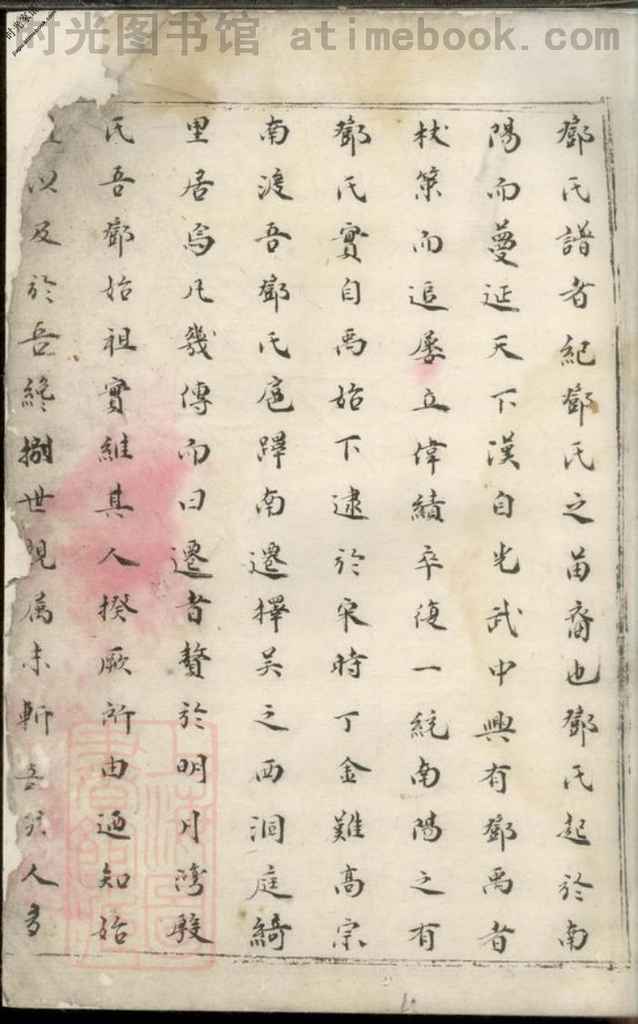 时光图书馆 atimebook.com
鄧氏譜者紀鄧氏之苗裔也鄧氏起於南
陽而蔓延天下漢自光武中興有鄧禹者
杖策而追屡立偉績卒復一統南陽之有
鄧氏實自禹始下逮於宋時丁金難高宗
南渡吾鄧氏扈蹕南遷擇吳之西洞庭綺
里居焉凡幾傳而曰遷者贅於明月灣殷
氏吾鄧始祖實維其人揆厥所由迺知始
以及於吾終捌世親属未斬吾人多